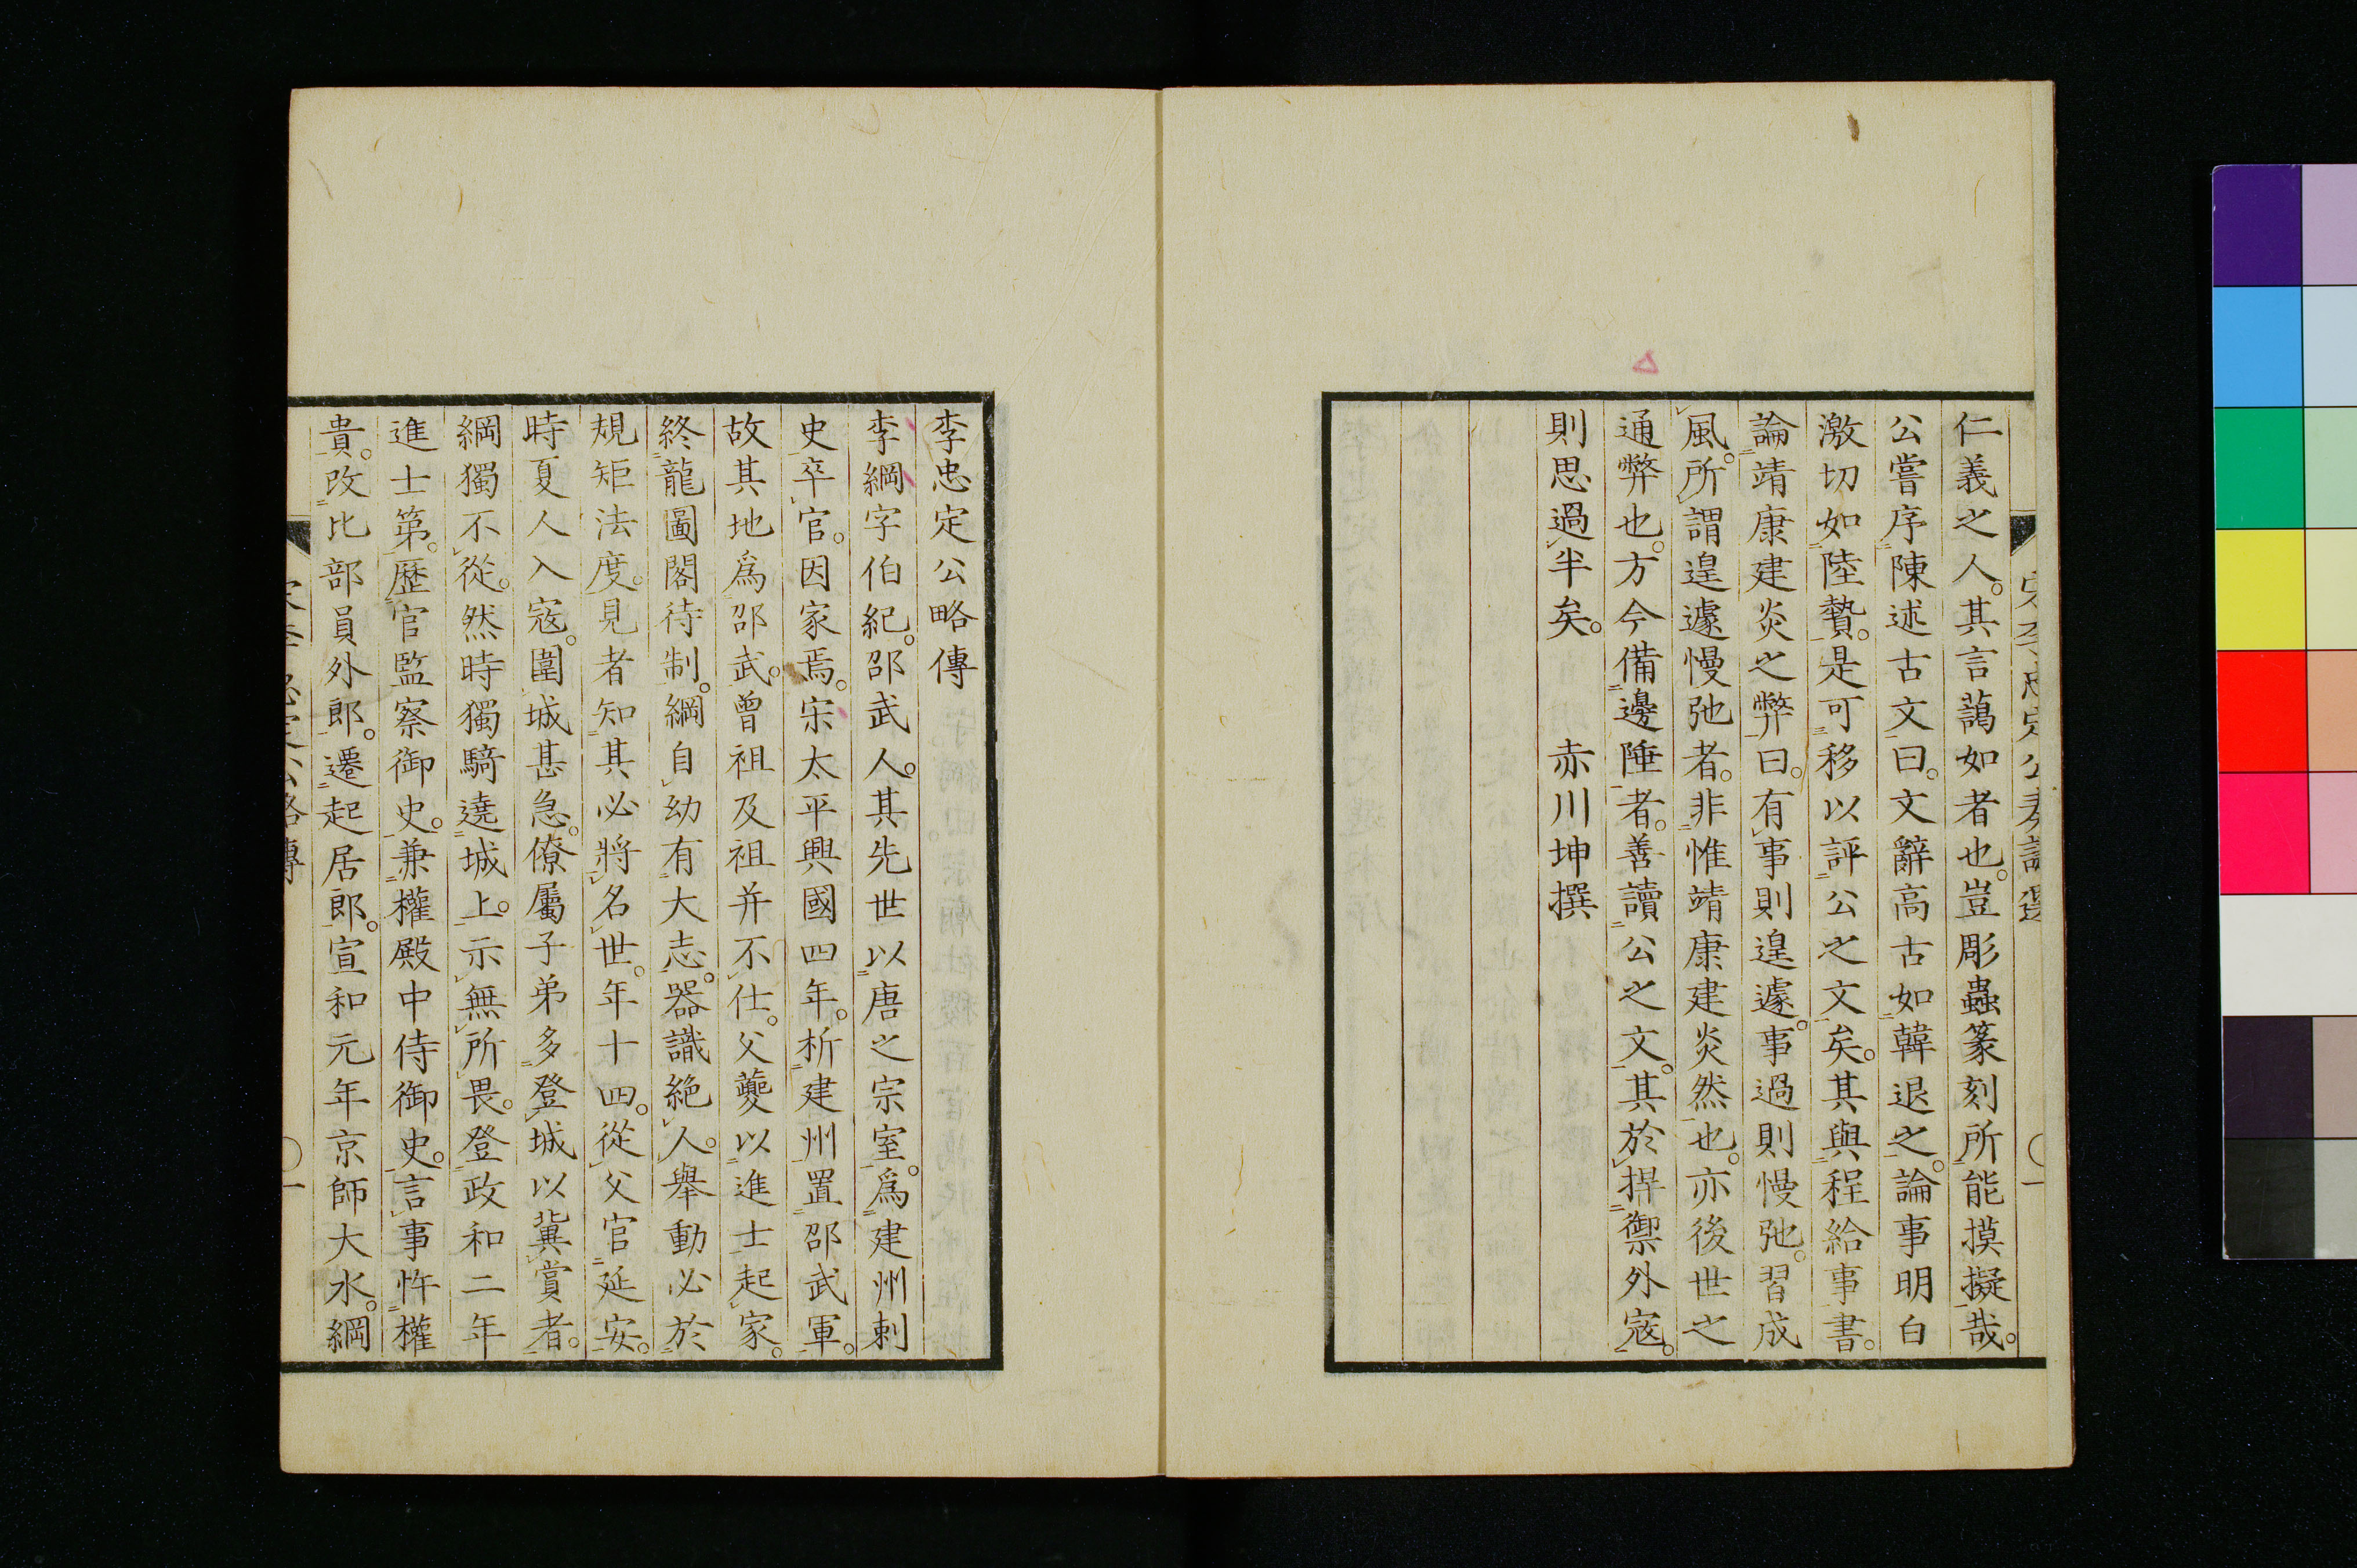 仁義之人。其言藹如者也。豈彫蟲篆刻所能摸擬哉。
公嘗序陳述古文曰。文辭高古如韓退之。論事明白
激切如陸贄。是可移以評公之文矣。其與程給事書。
論靖康建炎之弊曰。有事則遑遽。事過則慢弛。習成
風。所謂遑遽慢弛者。非惟靖康建炎然也。亦後世之
通弊也。方今備邊陲者。善讀公之文。其於捍禦外寇。
則思過半矣。 赤川坤撰
李忠定公略傳
李綱字伯紀。邵武人。其先世以唐之宗室。爲建州刺
史卒官。因家焉。宋太平興國四年。析建州置邵武軍。
故其地爲邵武。曾祖及祖并不仕。父夔以進士起家。
終龍圖閣待制。綱自幼有大志。器識絶人。舉動必於
規矩法度。見者知其必將名世。年十四。從父官延安。
時夏人入寇。圍城甚急。僚屬子弟多登城以冀賞者。
綱獨不從。然時獨騎遶城上。示無所畏。登政和二年
進士第。歷官監察御史。兼權殿中侍御史。言事忤權
貴。改比部員外郎。遷起居郎。宣和元年京師大水。綱